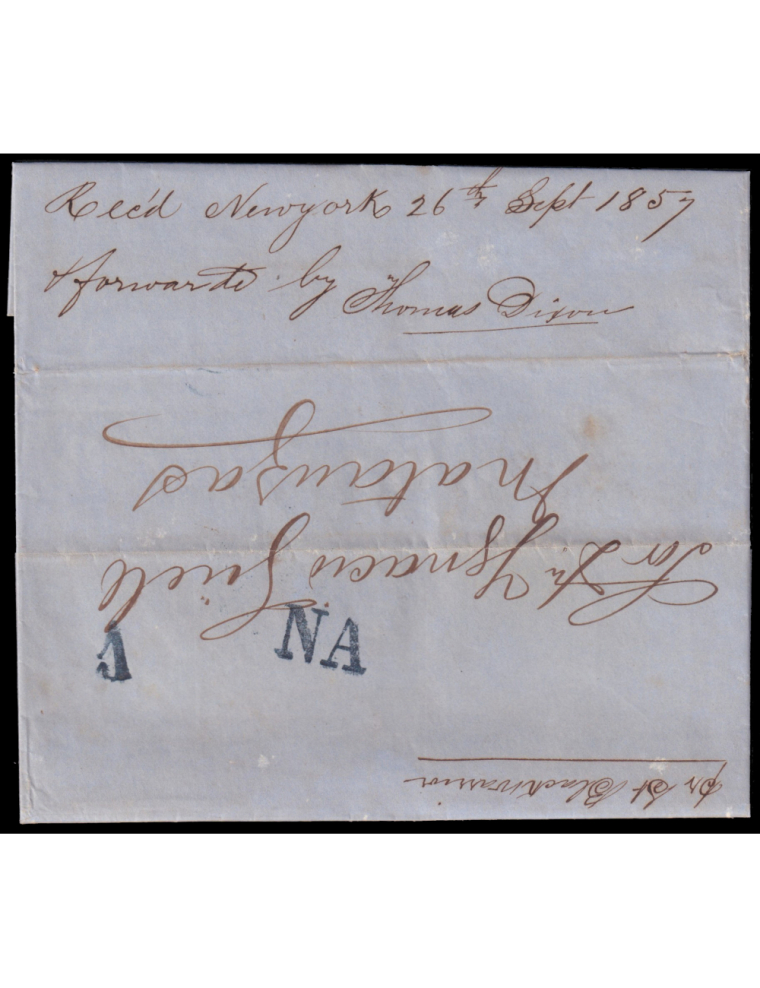 Rec'd Newyork 26th Sept 1857
& forwarde by Thomas Dixon
Sor Dn Ygnacio Güell
Matanzas
NA
1
pr St Blackwarrior